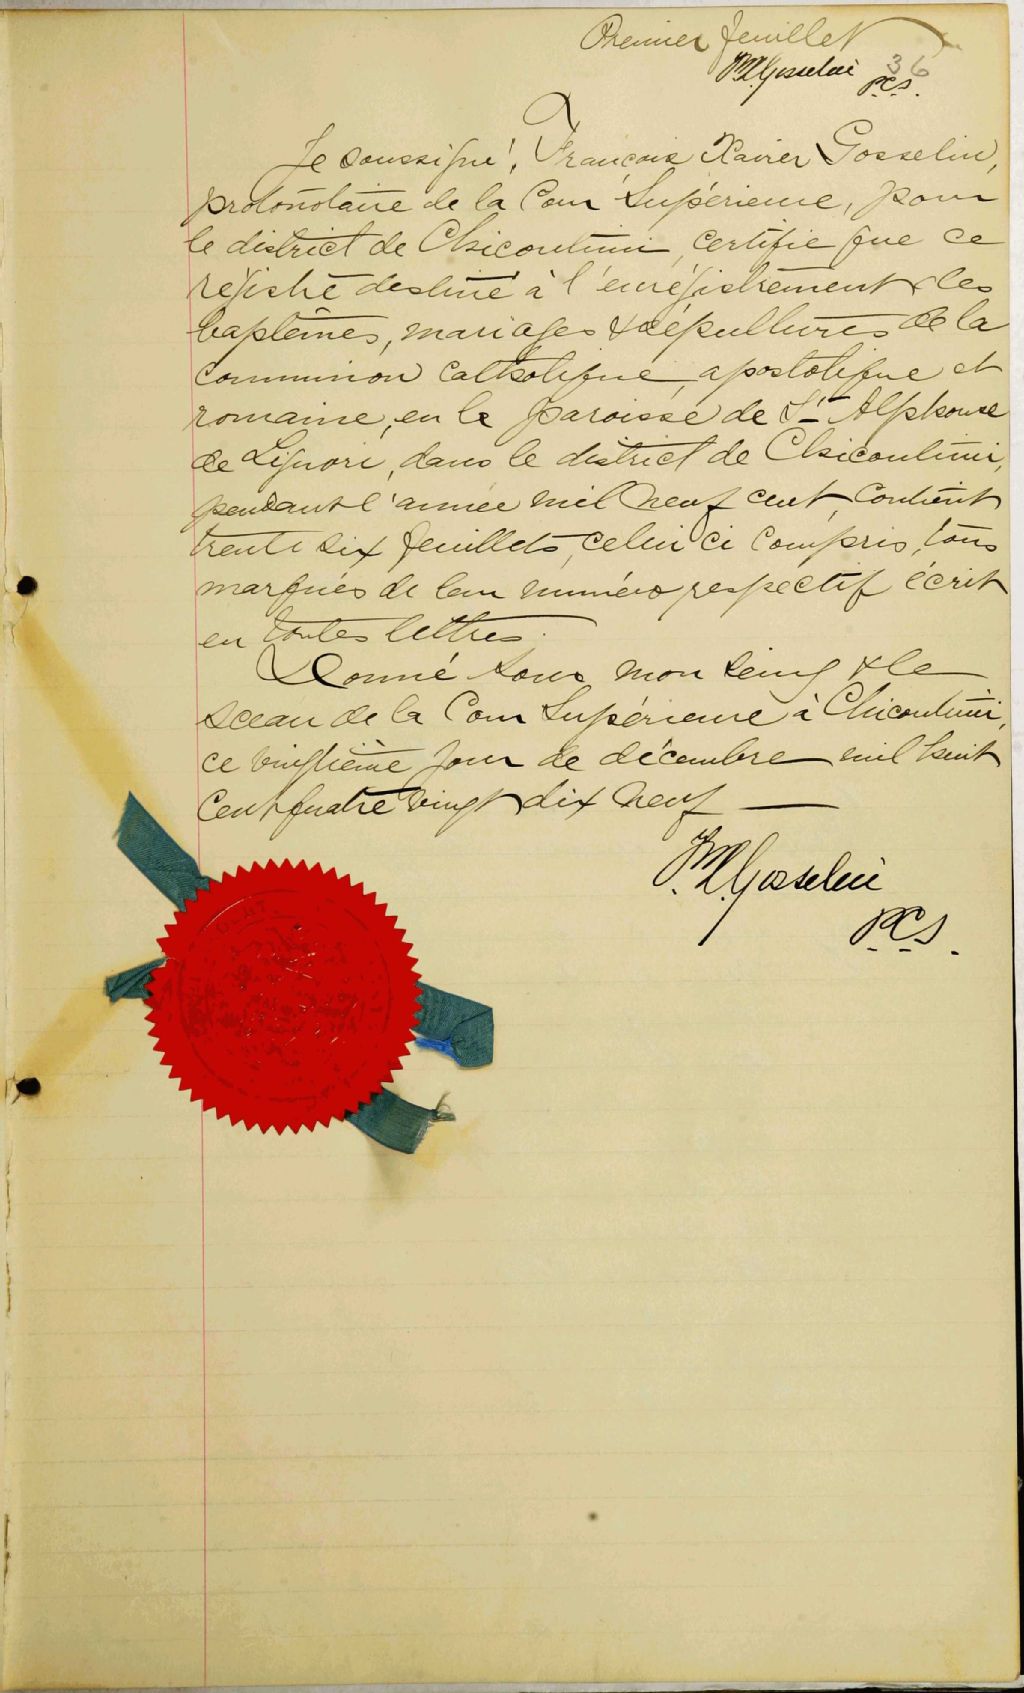 Premier feuillet
FX Gosselin 36
P.C.S.
Je soussigné, François Xavier Gosselin,
protonotaire de la Cour Supérieure, pour
le district de Chicoutimi, certifie que ce
régistre destiné à l'enrégistrement des
baptêmes, mariages & sépultures de la
communion catholique, apostolique et
romaine, en la paroisse de St Alphonse
de Liguori, dans le district de Chicoutimi,
pendant l'année mil neuf cent, contient
trente six feuillets, celui ci compris, tous
marqués de leur numéro respectif écrit
en toutes lettres.
Donné sous mon seing & le
sceau de la Cour Supérieure à Chicoutimi,
ce vingtième jour de décembre mil huit
cent quatre vingt dix neuf —
FX Gosselin
P.C.S.